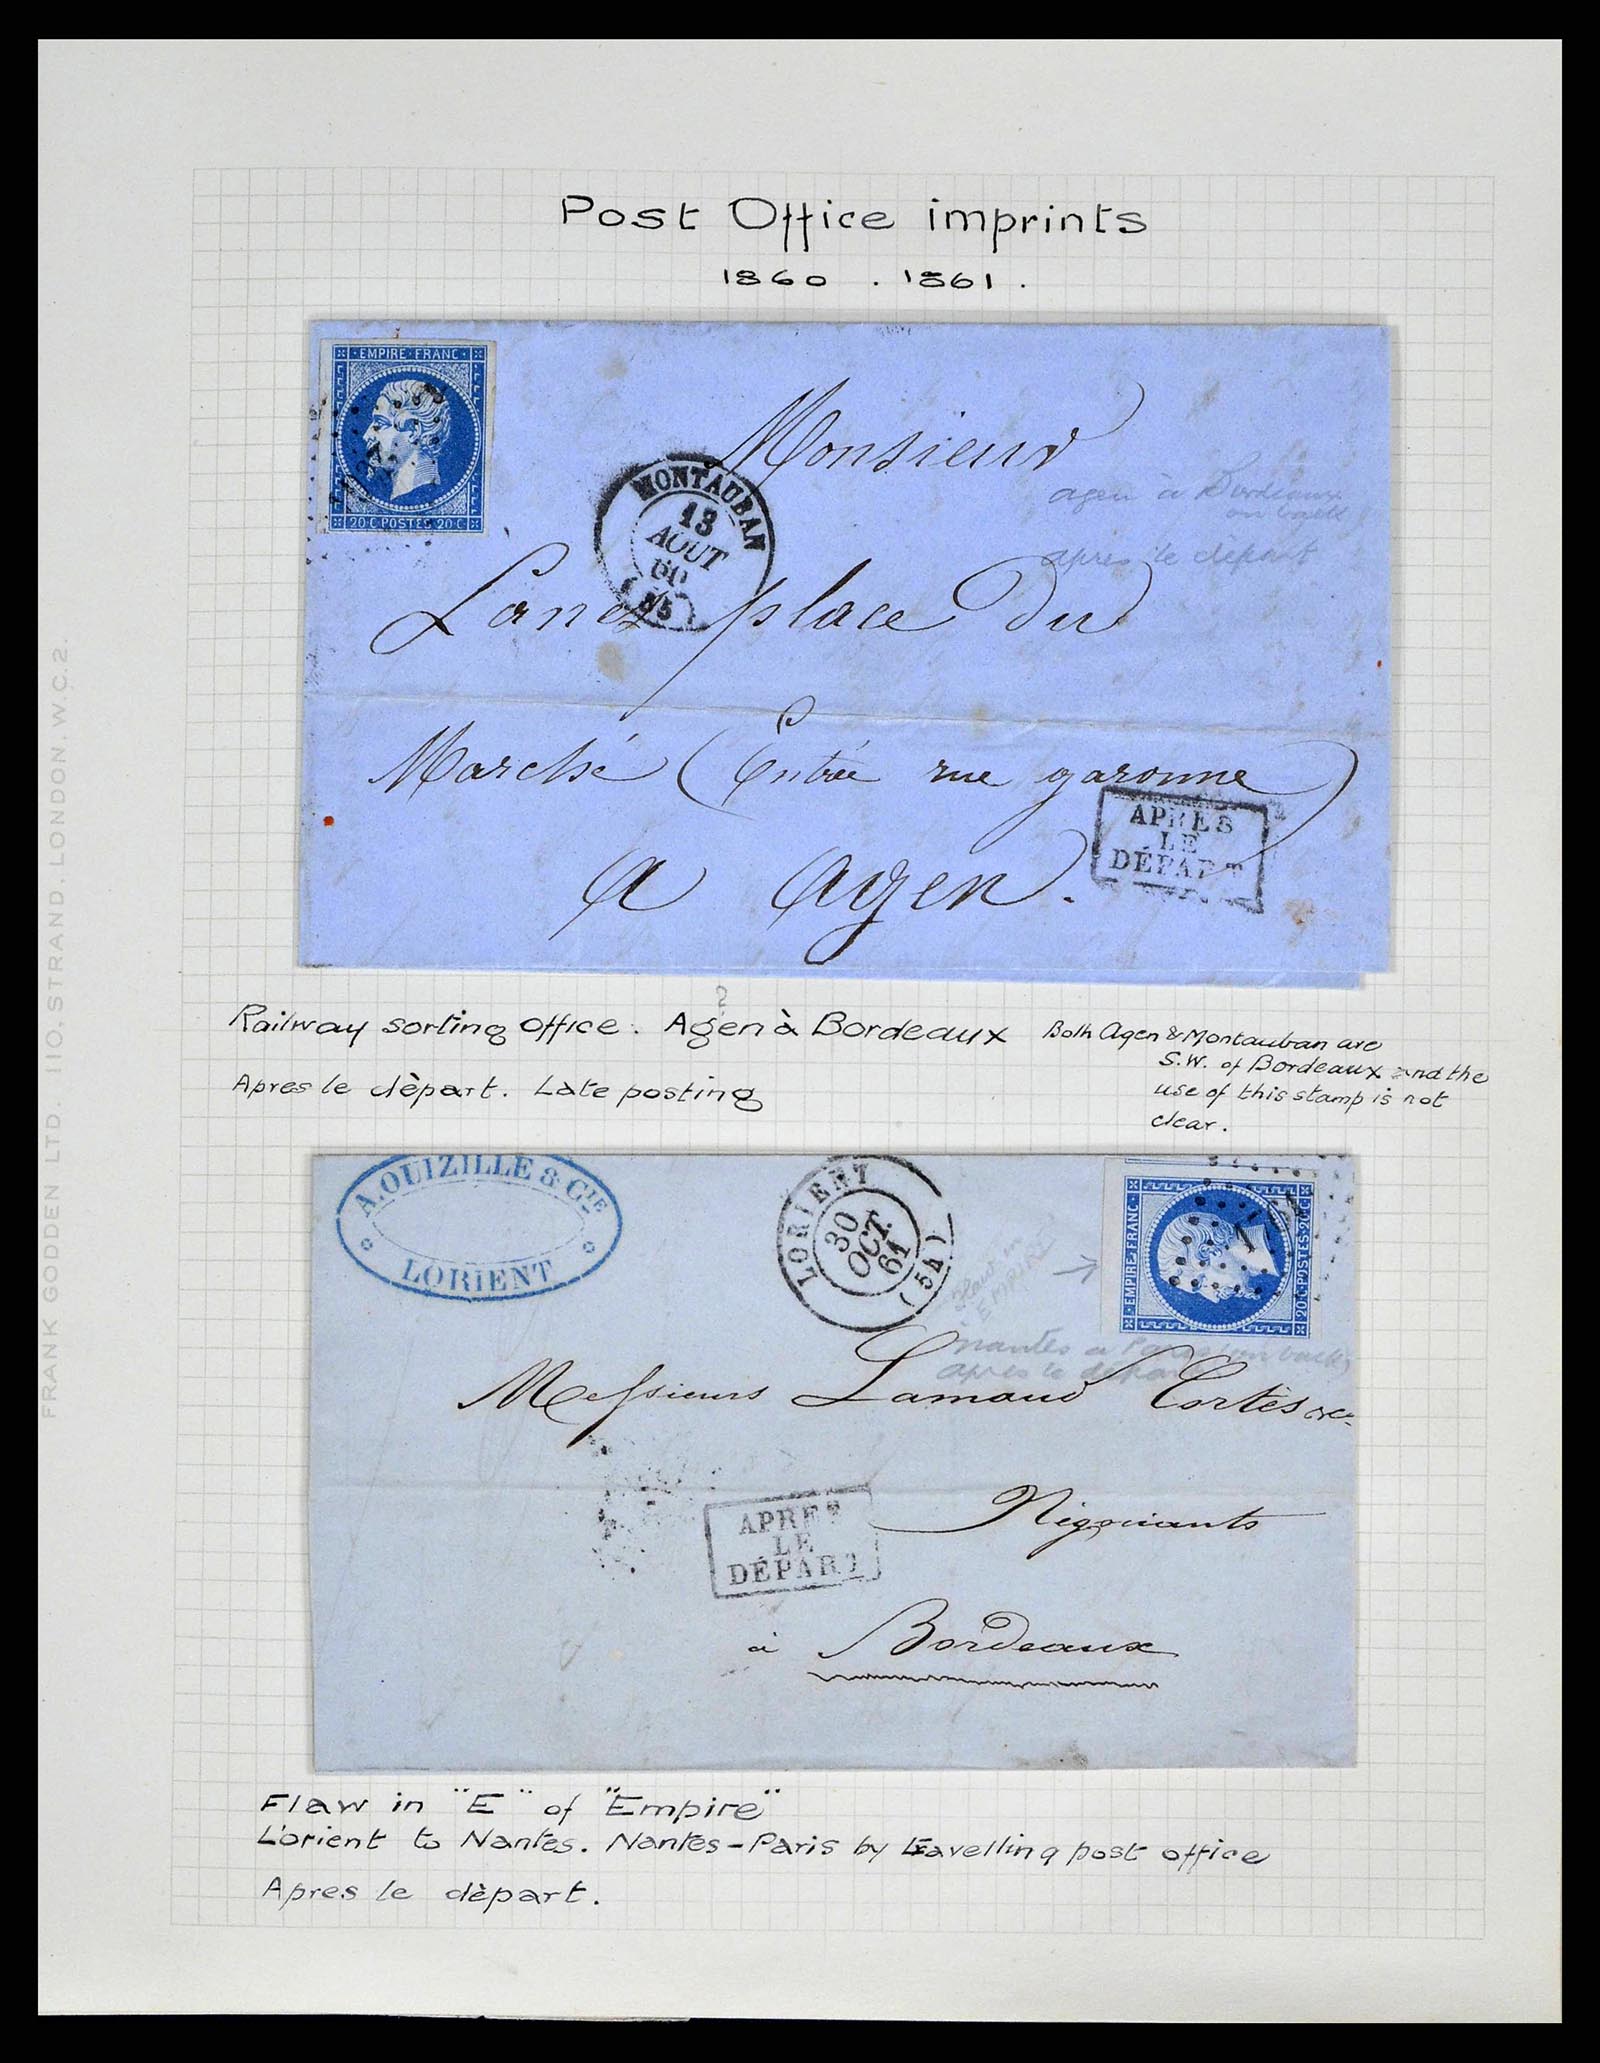 Post Office imprints
1860 . 1861 .
EMPIRE FRANC
20 C POSTES 20 C
MONTAUBAN
13
AOUT
60
Monsieur
agen à Bordeaux
on back
apres le départ
place du
Marché (Entrée rue garonne)
APRES
LE
DÉPART
a agen.
?
Railway sorting office. Agen à Bordeaux
Apres le dèpart. Late posting
Both Agen & Montauban are
S.W. of Bordeaux and the
use of this stamp is not
clear.
A. OUIZILLE & CIE
LORIENT
LORIENT
30
OCT.
61
(54)
EMPIRE FRANC
20 C POSTES 20 C
Flaw in
EMPIRE
nantes a Paris (on back)
apres le départ
Messieurs Lamaud Cortès
Négociants
APRES
LE
DÉPART
à Bordeaux
Flaw in "E" of "Empire"
L'orient to Nantes. Nantes-Paris by travelling post office
Apres le dèpart.
FRANK GODDEN LTD. 110, STRAND, LONDON, W.C.2.